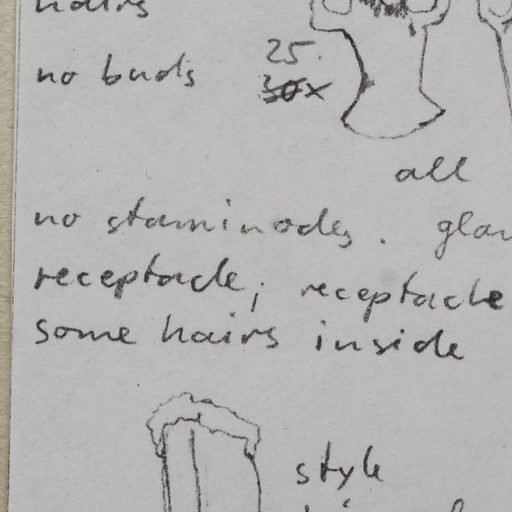 hairs
no buds
25.
30x
all
no staminodes. glan
receptacle; receptacle
some hairs inside
style